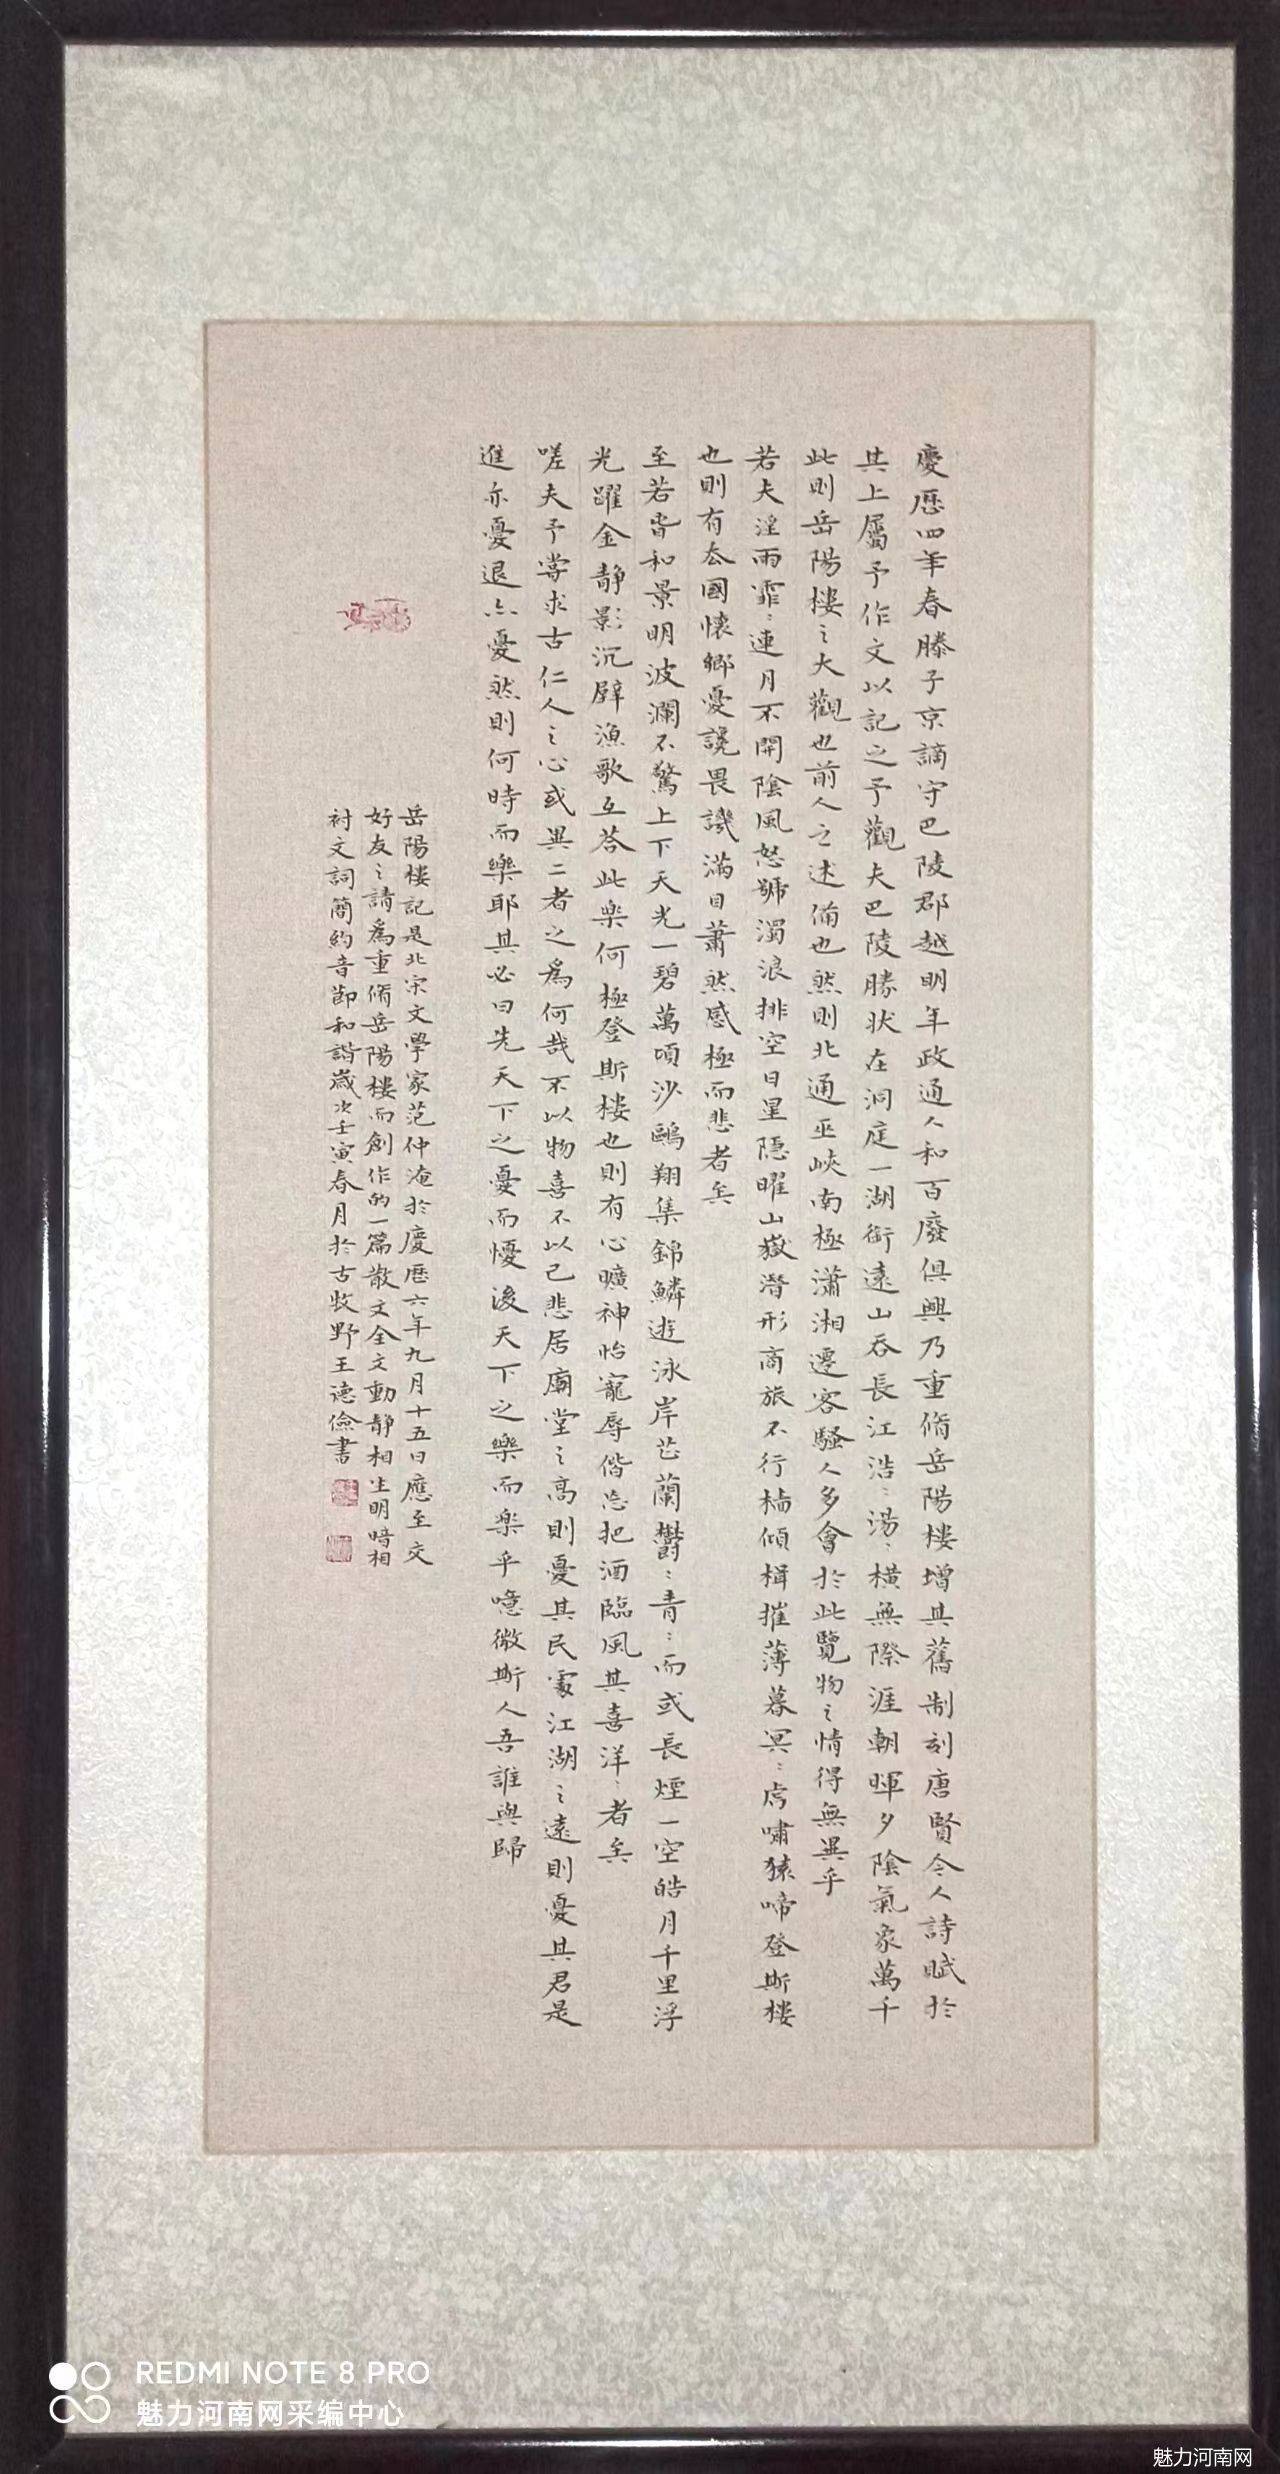 慶歷四年春滕子京謫守巴陵郡越明年政通人和百廢俱興乃重脩岳陽樓增其舊制刻唐賢今人詩賦於
其上屬予作文以記之予觀夫巴陵勝狀在洞庭一湖銜遠山吞長江浩〻湯〻橫無際涯朝暉夕陰氣象萬千
此則岳陽樓之大觀也前人之述備也然則北通巫峽南極瀟湘遷客騷人多會於此覽物之情得無異乎
若夫淫雨霏〻連月不開陰風怒號濁浪排空日星隱曜山嶽潛形商旅不行檣傾楫摧薄暮冥〻虎嘯猿啼登斯樓
也則有去國懷鄉憂讒畏譏滿目蕭然感極而悲者矣
至若春和景明波瀾不驚上下天光一碧萬頃沙鷗翔集錦鱗遊泳岸芷蘭鬱〻青〻而或長煙一空皓月千里浮
光躍金靜影沉璧漁歌互答此樂何極登斯樓也則有心曠神怡寵辱偕忘把酒臨風其喜洋〻者矣
嗟夫予嘗求古仁人之心或異二者之為何哉不以物喜不以己悲居廟堂之高則憂其民處江湖之遠則憂其君是
進亦憂退亦憂然則何時而樂耶其必曰先天下之憂而憂後天下之樂而樂乎噫微斯人吾誰與歸
岳陽樓記是北宋文學家范仲淹於慶歷六年九月十五日應至交
好友之請為重脩岳陽樓而創作的一篇散文全文動靜相生明暗相
衬文詞簡約音節和諧歲次壬寅春月於古牧野王德儉書
REDMI NOTE 8 PRO
魅力河南网采编中心
魅力河南网